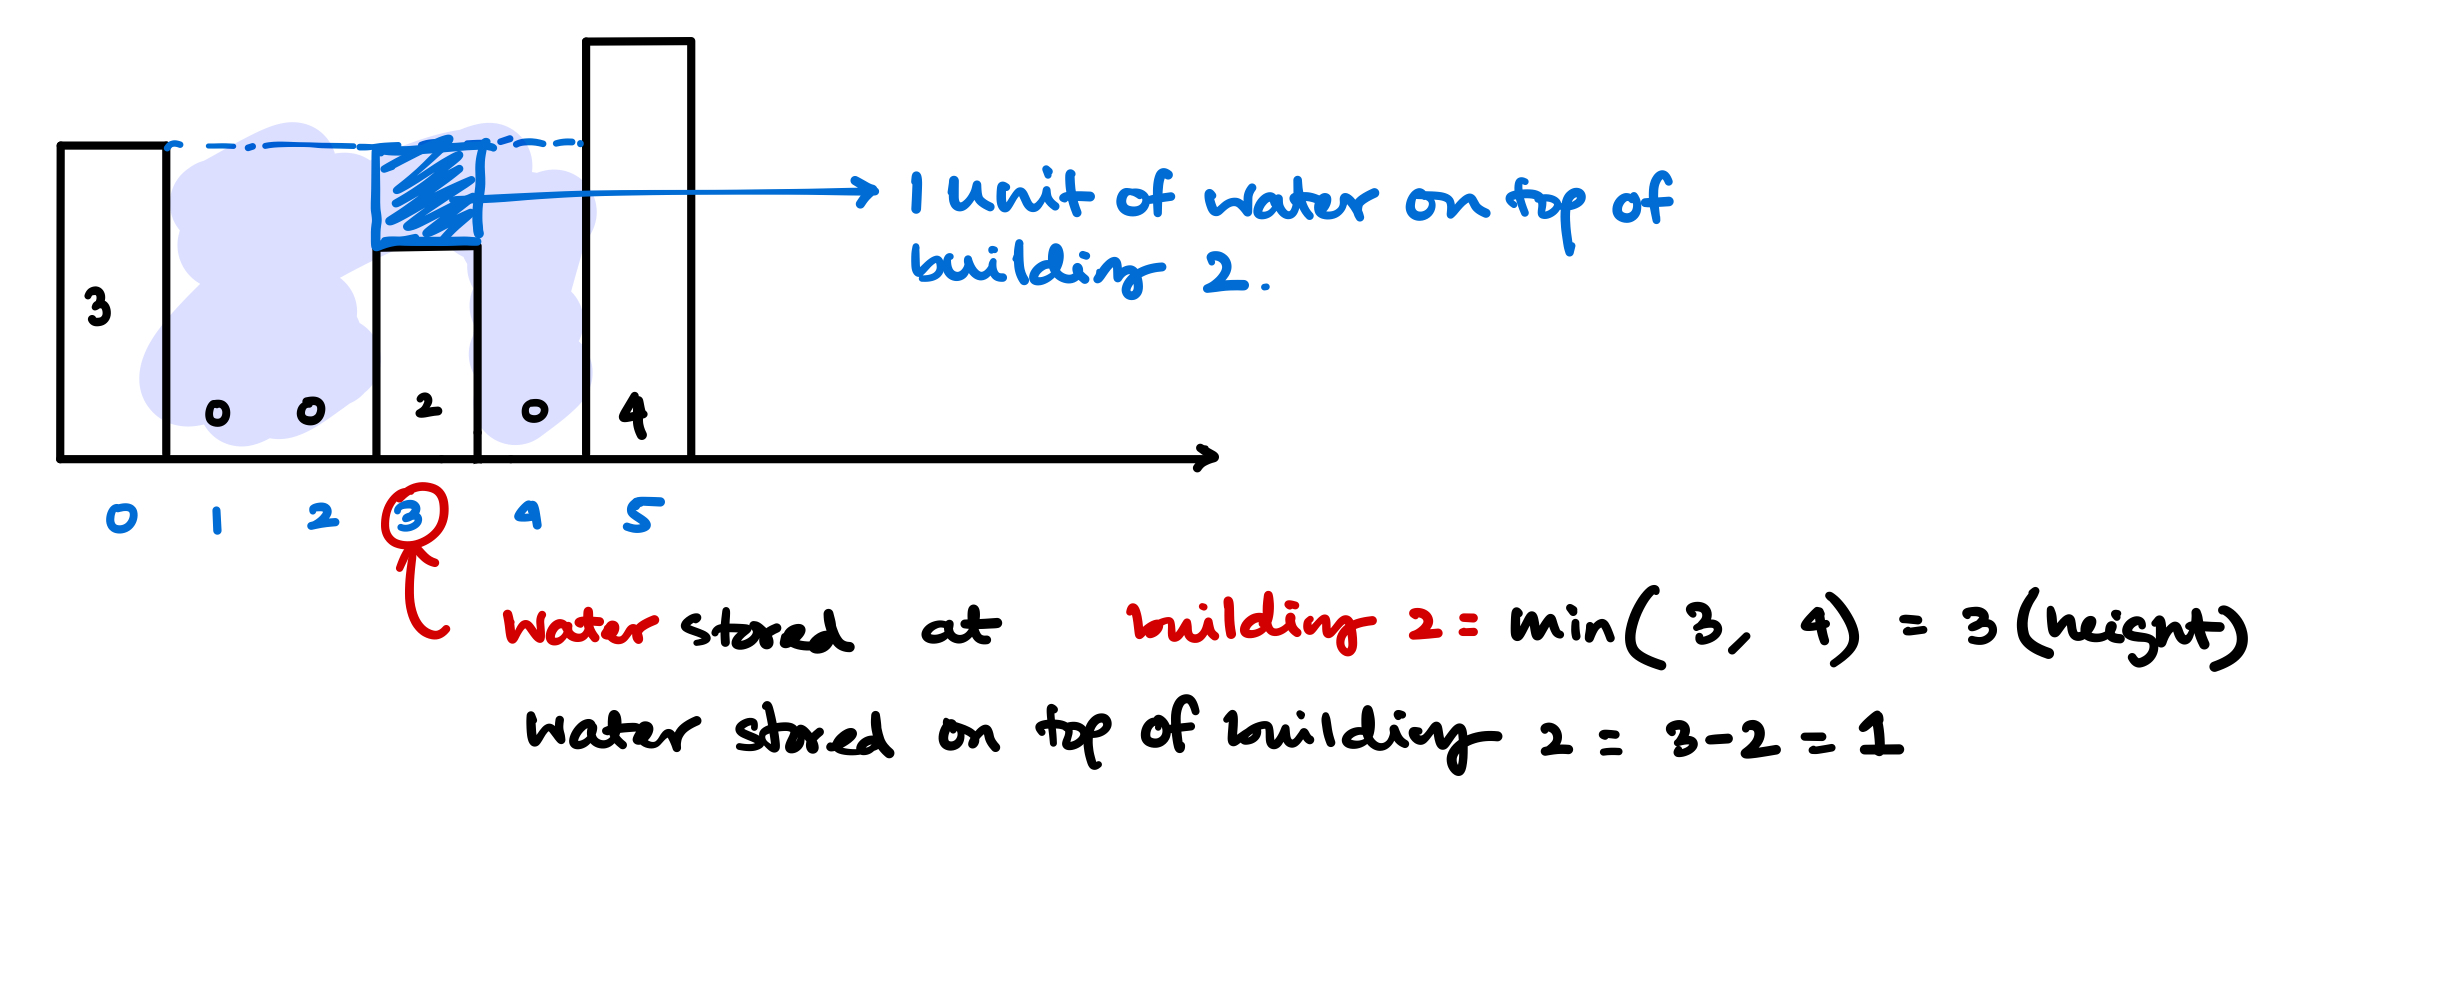 1 unit of water on top of
building 2.
3
0 0 2 0 4
0 1 2 3 4 5
water stored at building 2 = min(3, 4) = 3 (height)
water stored on top of building 2 = 3-2 = 1